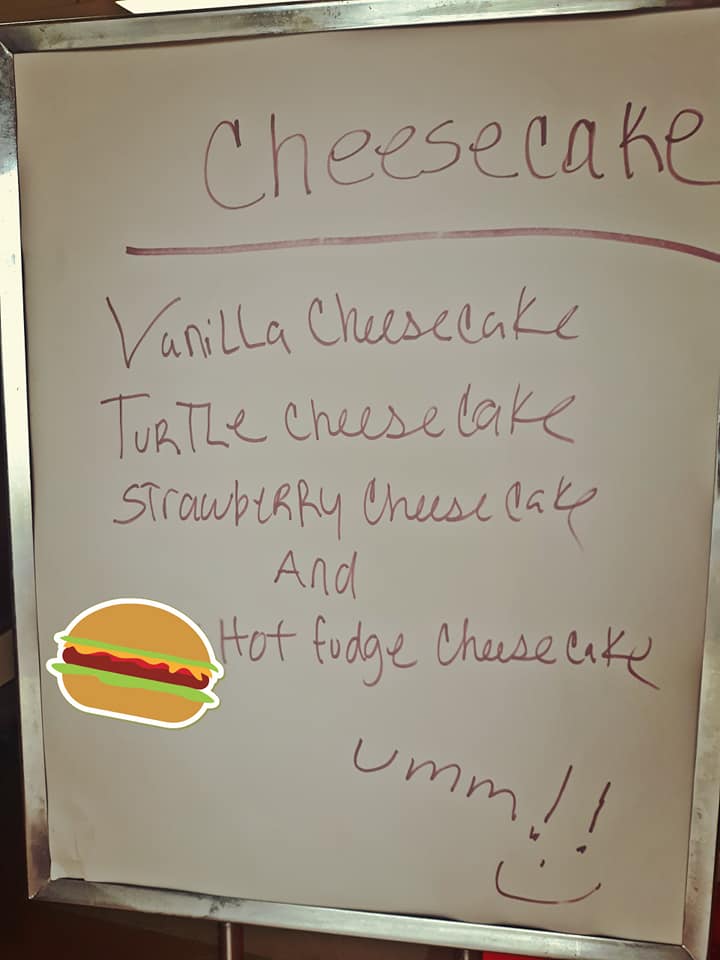 Cheesecake
Vanilla Cheesecake
Turtle cheesecake
Strawberry Cheesecake
And
Hot fudge Cheesecake
Umm!!